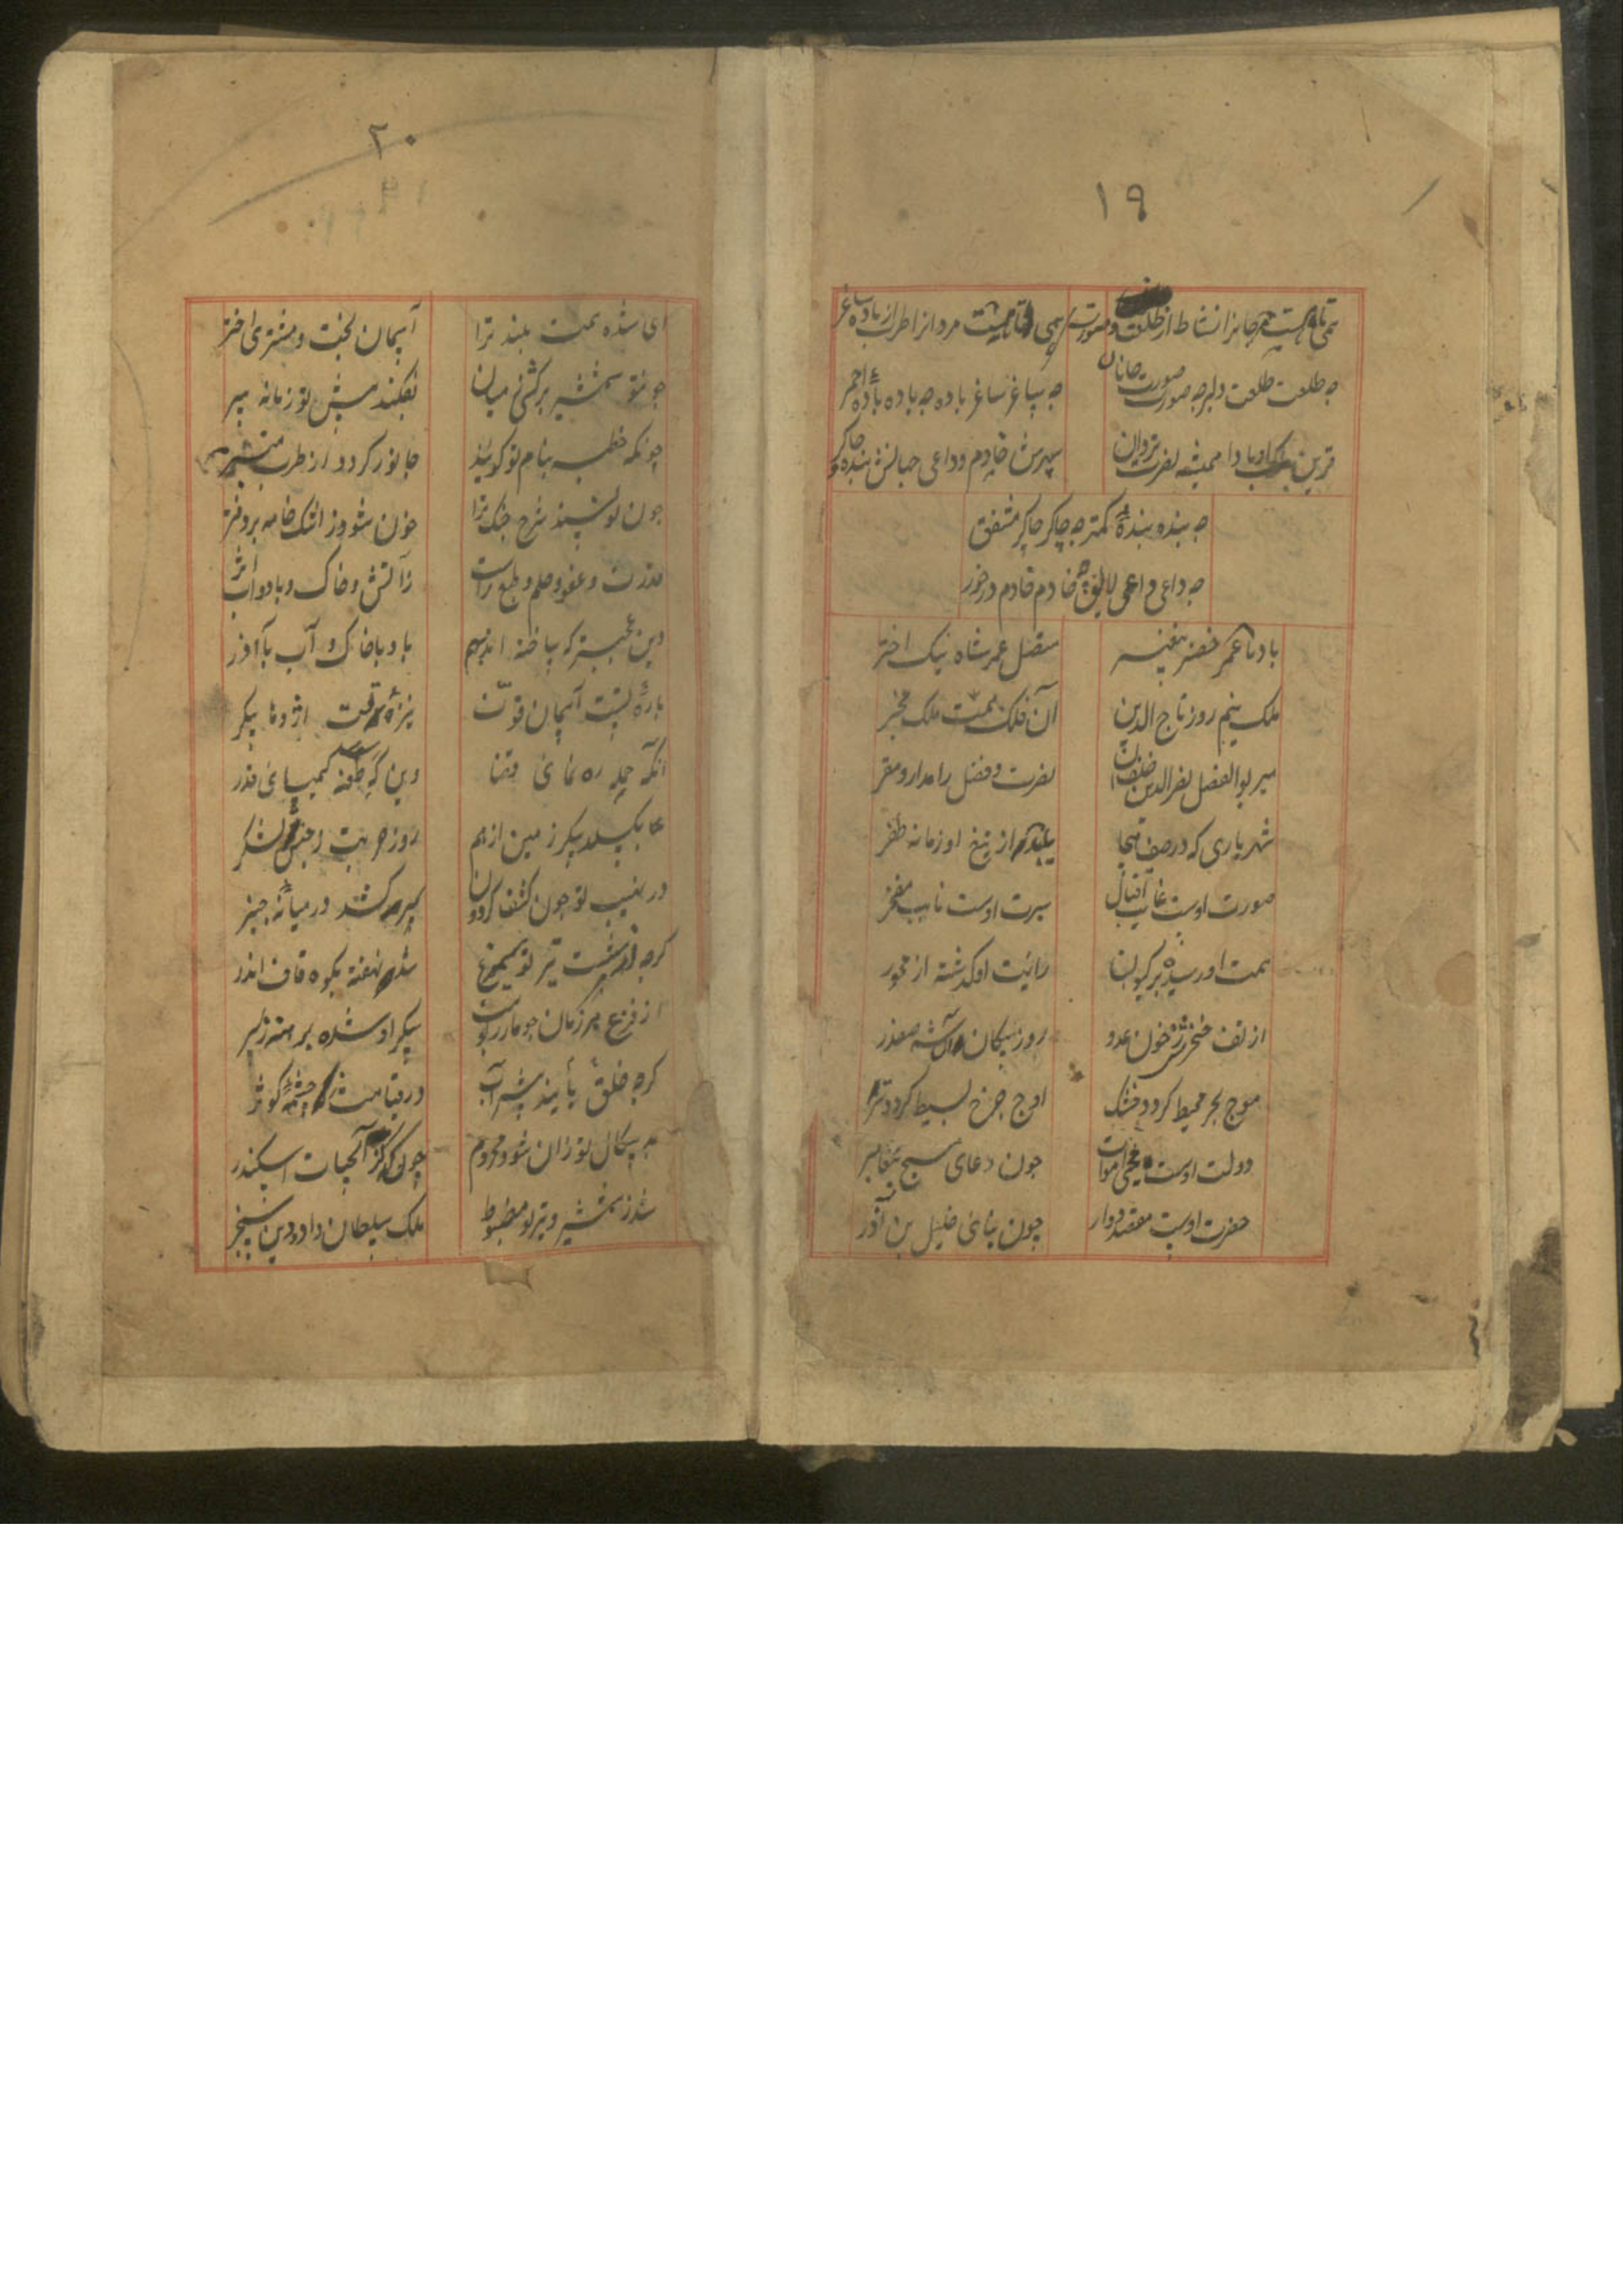 ١٩
همی تا هست مر جانرا نشاط از طلعت و صورت همی تا هست مردانرا طرب از باده و ساغر
چه طلعت طلعت دلبر چه صورت صورت جانان چه ساغر ساغر باده چه باده بادهٔ احمر
قرین ملک او بادا همیشه نصرت یزدان سپهرش خادم و داعی جهانش بنده و چاکر
چه بنده بندهٔ کمتر چه چاکر چاکر مشفق
چه داعی داعی لایق چه خادم خادم درخور
باد تا عمر خضر پیغمبر متصل عمر شاه نیک اختر
ملک نیمروز تاج الدین آن فلک همت ملک مخبر
میر بوالفضل نصر الدین خلف آن نصرت و فضل را مدار و مقر
شهریاری که در صف هیجا از تیغ او زمانه ظفر
صورت اوست غایت اقبال سیرت اوست نایب مفخر
همت او رسیده بر کیوان رایت او گذشته از محور
از تف خنجرش ز خون عدو روز پیکان
موج بحر محیط گردد خشک اوج چرخ بسیط گردد تر
دولت اوست محیی اموات چون دعای مسیح پیغامبر
حضرت اوست مقصد زوار چون بنای خلیل بن آذر
٢٠
ای شده همت بلند ترا آسمان تخت و مشتری اختر
چو تو شمشیر برکشی ز میان بفکند پیش تو زمانه سپر
چونکه خطبه بنام تو گویند جانور گردد از طرب منبر
چون نویسند شرح جنگ ترا خون شود ز اشک خامه بر دفتر
قدرت و عفو و حلم و طبع تراست ز آتش و خاک و باد و آب اثر
وین عجبتر که ساخته‌اند بهم باد با خاک و آب با آذر
بارهٔ تست آسمان قوت نیزهٔ تست اژدها پیکر
آنکه حمله ره نمای قضا وین گه طعنه کیمیای قدر
بگسلد پیکر زمین از هم روز هیبت و جنبش لشکر
در نهیب تو چون کشف گردون سر کشد در میانهٔ چنبر
گرچه از شست تیر تو سیمرغ شد نهفته بکوه قاف اندر
از فزع هر زمان چو مار پیکر او شده بر
گرچه خلق یابند شراب در قیامت ز چشمهٔ کوثر
بد سگال تو زان شود محروم چون ز آبحیات اسکندر
شد ز شمشیر و تیر تو مضبوط ملک سلطان داد و دین سنجر